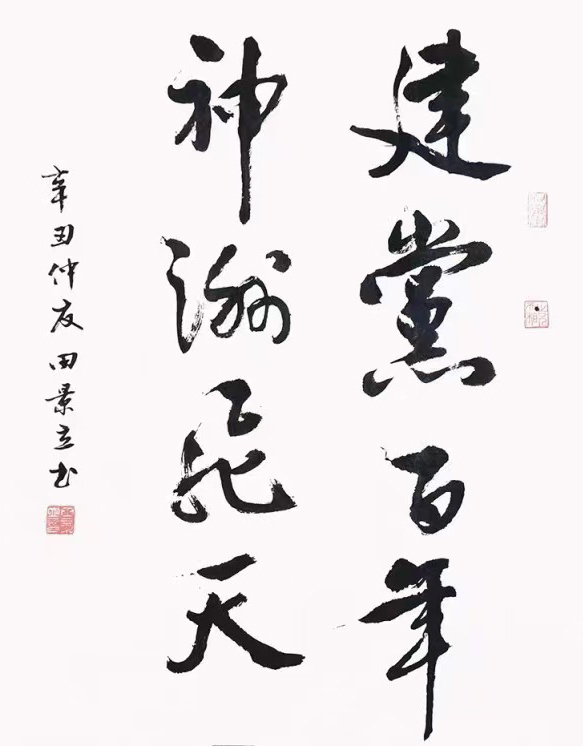 建黨百年
神洲飛天
辛丑仲夏田景立书